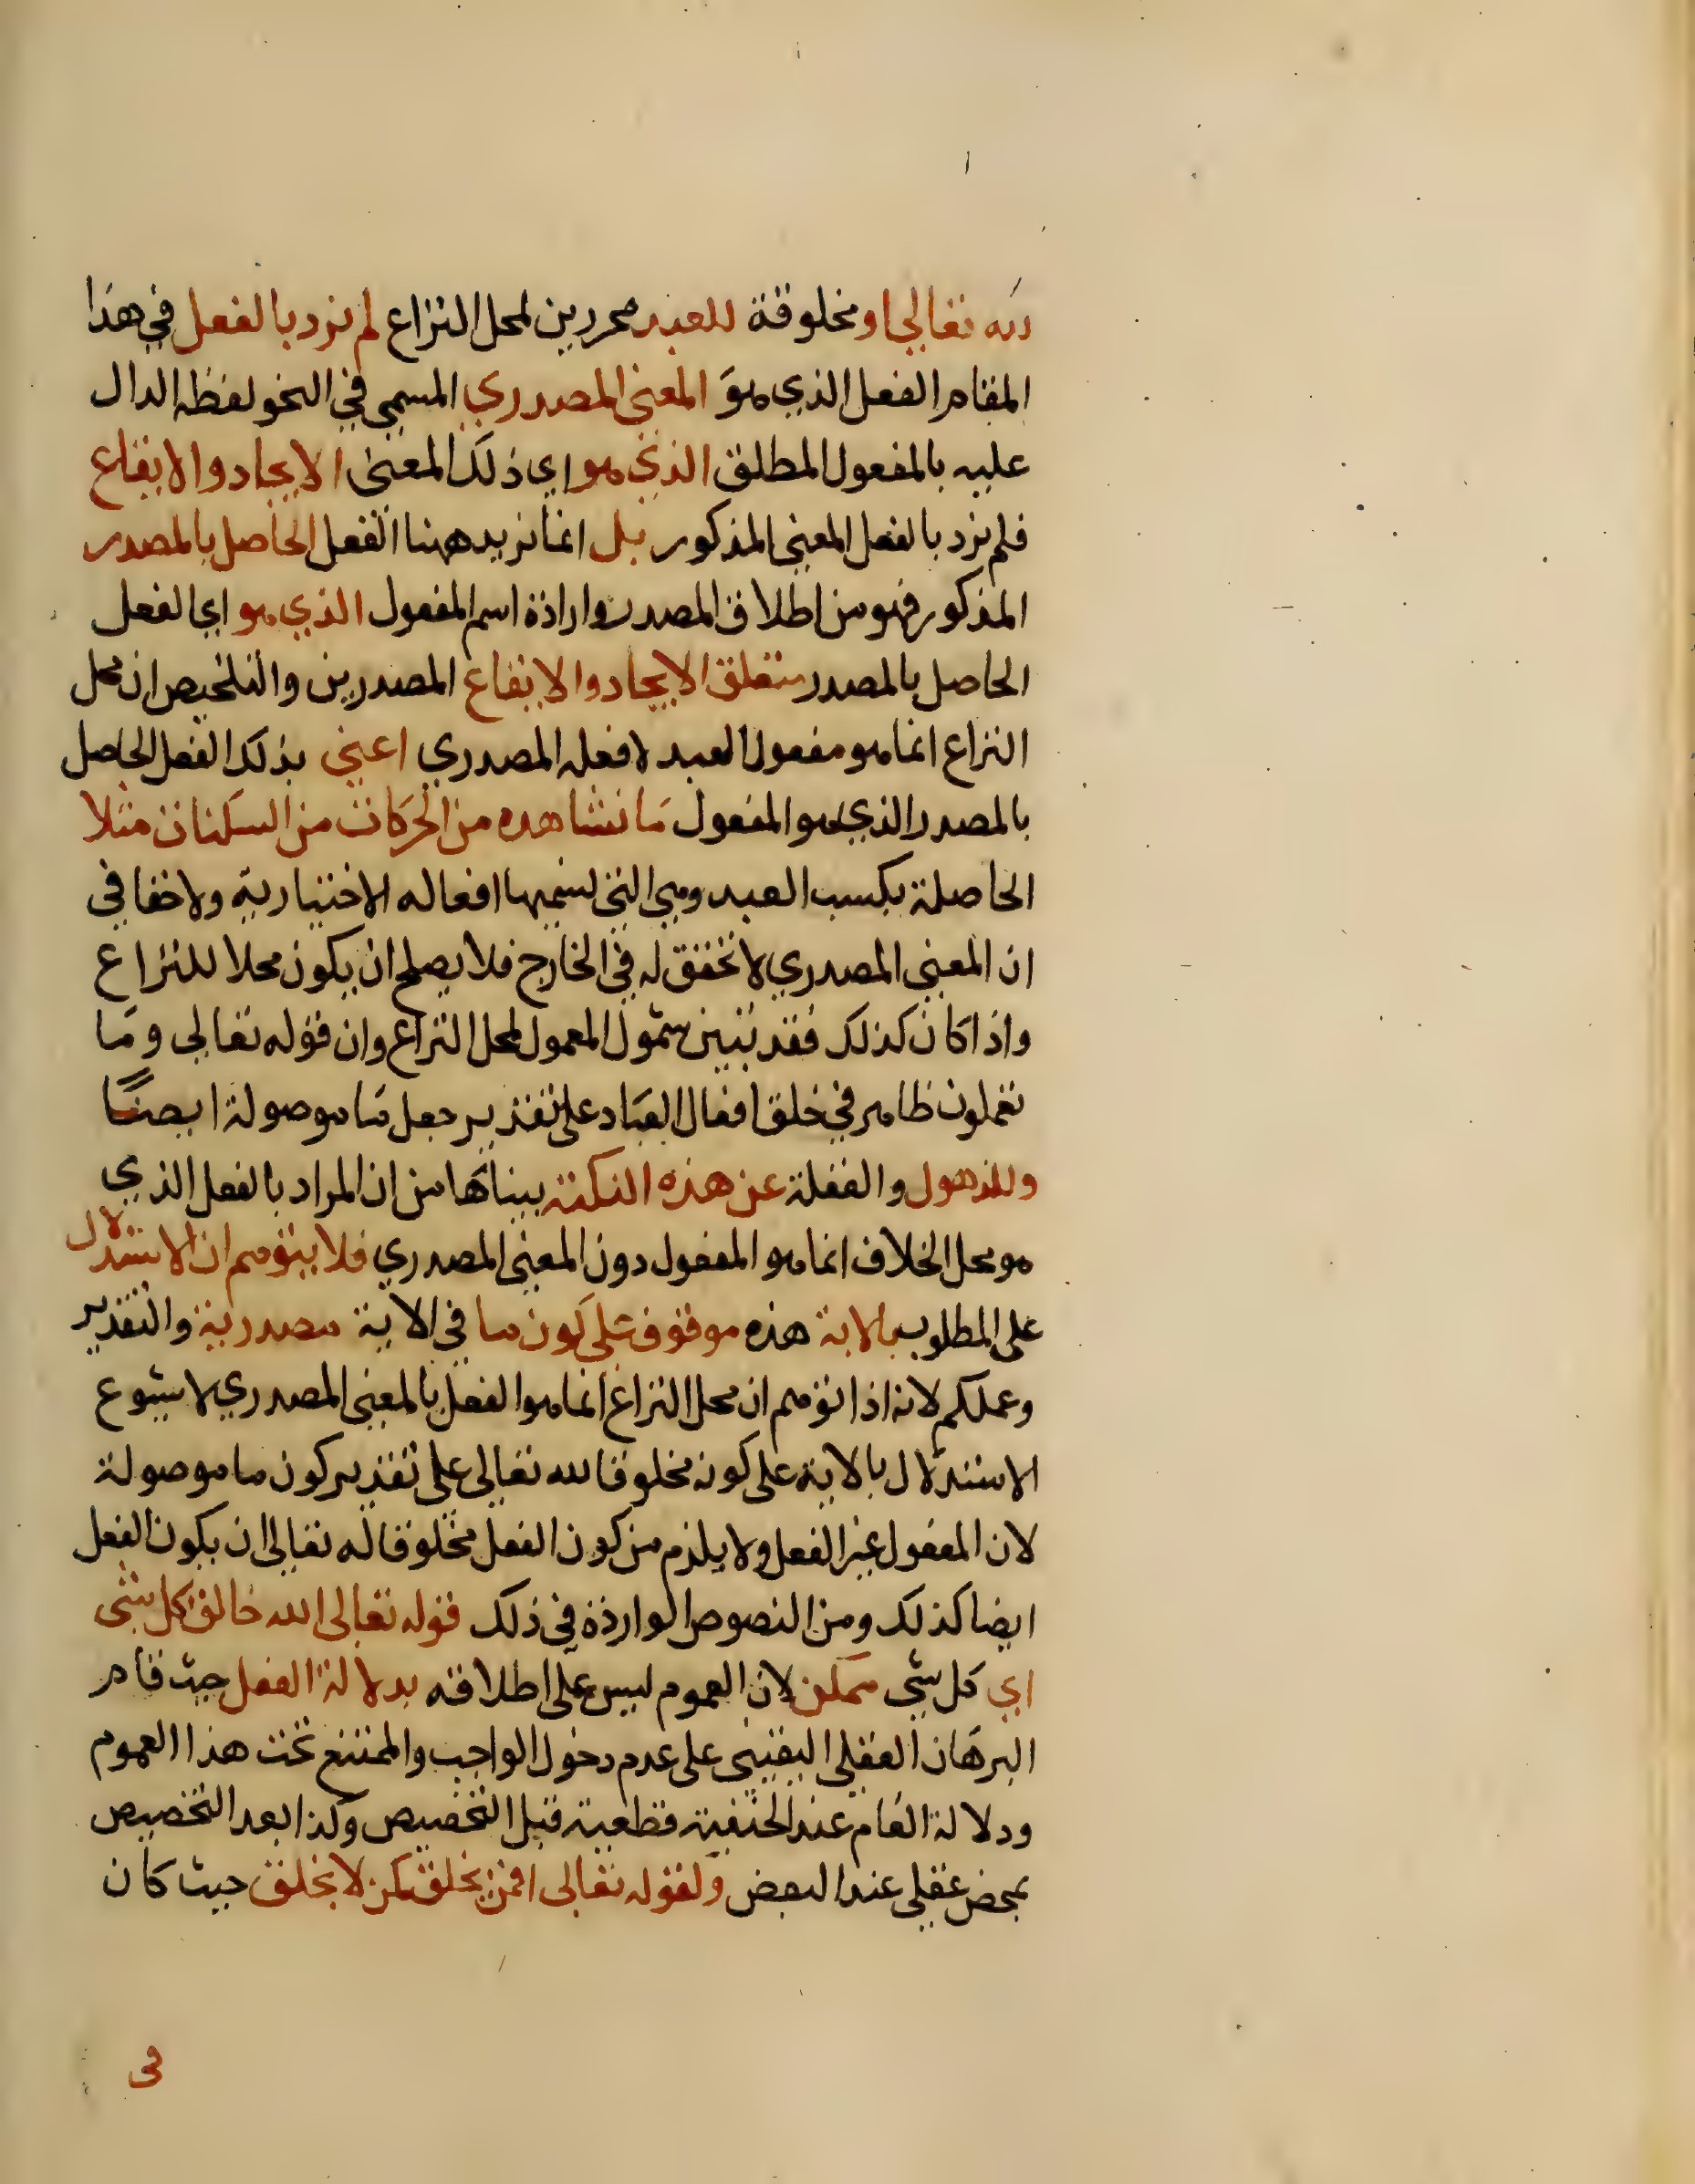 لله تعالى او مخلوقة للعبد محررين لمحل النزاع لم نرد بالفعل في هذا
المقام الفعل الذي هو المعنى المصدري المسمى في النحو لفظه الدال
عليه بالمفعول المطلق الذي هو اي ذلك المعنى الايجاد والايقاع
فلم نرد بالفعل المعنى المذكور بل انما نريد ههنا الفعل الحاصل بالمصدر
المذكور فهو من اطلاق المصدر وارادة اسم المفعول الذي هو اي الفعل
الحاصل بالمصدر متعلق الايجاد والايقاع المصدرين والتلخيص ان محل
النزاع انما هو مفعول العبد لا فعله المصدري اعني بذلك الفعل الحاصل
بالمصدر الذي هو المفعول ما نشاهده من الحركات من السكنات مثلا
الحاصلة بكسب العبد وهي التي نسميها افعاله الاختيارية ولا خفا في
ان المعنى المصدري لا تحقق له في الخارج فلا يصلح ان يكون محلا للنزاع
واذا كان كذلك فقد تبين شمول المعمول لمحل النزاع وان قوله تعالى وما
تعملون ظاهر في خلق افعال العباد على تقدير جعل ما موصولة ايضا
وللذهول والغفلة عن هذه النكتة بيناها من ان المراد بالفعل الذي
هو محل الخلاف انما هو المفعول دون المعنى المصدري فلا يتوهم ان الاستدلال
على المطلوب بالاية هذه موقوف على كون ما في الاية مصدرية والتقدير
وعملكم لانه اذا توهم ان محل النزاع انما هو الفعل بالمعنى المصدري لا يسوغ
الاستدلال بالاية على كونه مخلوقا لله تعالى على تقدير كون ما موصولة
لان المفعول غير الفعل ولا يلزم من كون الفعل مخلوقا له تعالى ان يكون الفعل
ايضا كذلك ومن النصوص الواردة في ذلك قوله تعالى الله خالق كل شي
اي كل شي ممكن لان العموم ليس على اطلاقه بدلالة العقل حيث قام
البرهان العقلي اليقيني على عدم دخول الواجب والممتنع تحت هذا العموم
ودلالة العام عند الحنفية قطعية قبل التخصيص وكذا بعد التخصيص
بمحض عقلي عند البعض ولقوله تعالى افمن يخلق كمن لا يخلق حيث كان
في